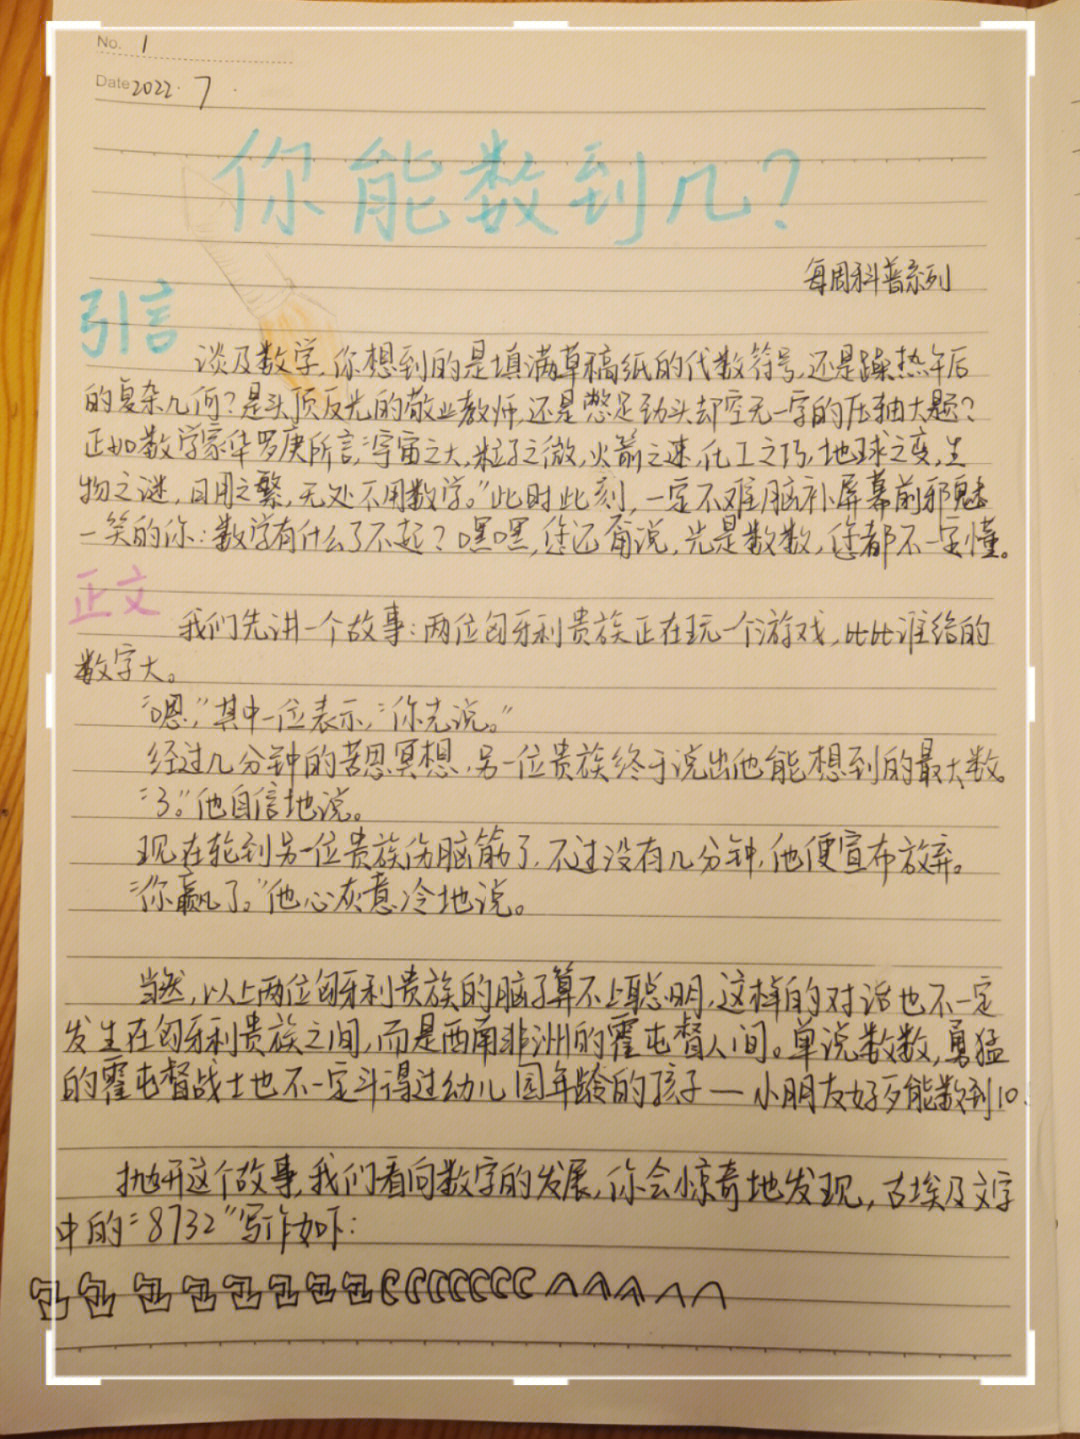 No. 1
Date 2022.7.
你能数到几?
每周科普系列
引言
谈及数学,你想到的是填满草稿纸的代数符号,还是躁热午后
的复杂几何?是头顶反光的敬业教师,还是憋足劲头却空无一字的压轴大题?
正如数学家华罗庚所言:"宇宙之大,粒子之微,火箭之速,化工之巧,地球之变,生
物之谜,日用之繁,无处不用数学。"此时此刻,一定不难脑补屏幕前邪魅
一笑的你:数学有什么了不起?嘿嘿,您还甭说,光是数数,您都不一定懂。
正文
我们先讲一个故事:两位匈牙利贵族正在玩一个游戏,比比谁给的
数字大。
"嗯,"其中一位表示,"你先说。"
经过几分钟的苦思冥想,另一位贵族终于说出他能想到的最大数。
"3。"他自信地说。
现在轮到另一位贵族伤脑筋了,不过没有几分钟,他便宣布放弃。
"你赢了。"他心灰意冷地说。
当然,以上两位匈牙利贵族的脑子算不上聪明,这样的对话也不一定
发生在匈牙利贵族之间,而是西南非洲的霍屯督人间。单说数数,勇猛
的霍屯督战士也不一定斗得过幼儿园年龄的孩子—小朋友好歹能数到10.
抛开这个故事,我们看向数字的发展,你会惊奇地发现,古埃及文字
中的"8732"写作如下: